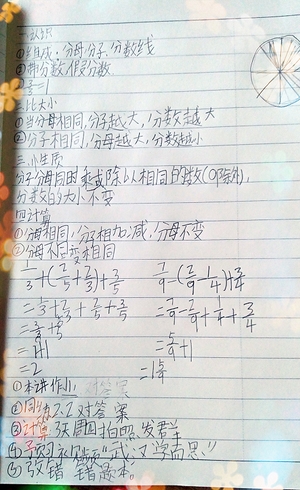 一.认识
①组成:分母.分子.分数线
②带分数.假分数
二.比大小
①当分母相同,分子越大,分数越大
②分子相同,分母越大,分数越小
三.小性质
分子分母同时乘或除以相同的数(0除外),
分数的大小不变
四计算
①分母相同,分子相加减,分母不变
②分母不同变相同
1/3+(2/5+2/3)+3/5
=1/3+2/3+2/5+3/5
=1+1
=2
7/9-(2/9-1/4)+3/4
=7/9-2/9+1/4+3/4
=5/9+1
=1 5/9
①本讲作业 对答案
②同练2.2对答案
③计算3天 周四拍照发群
④预习 "武汉学而思"
⑤改错 错题本.